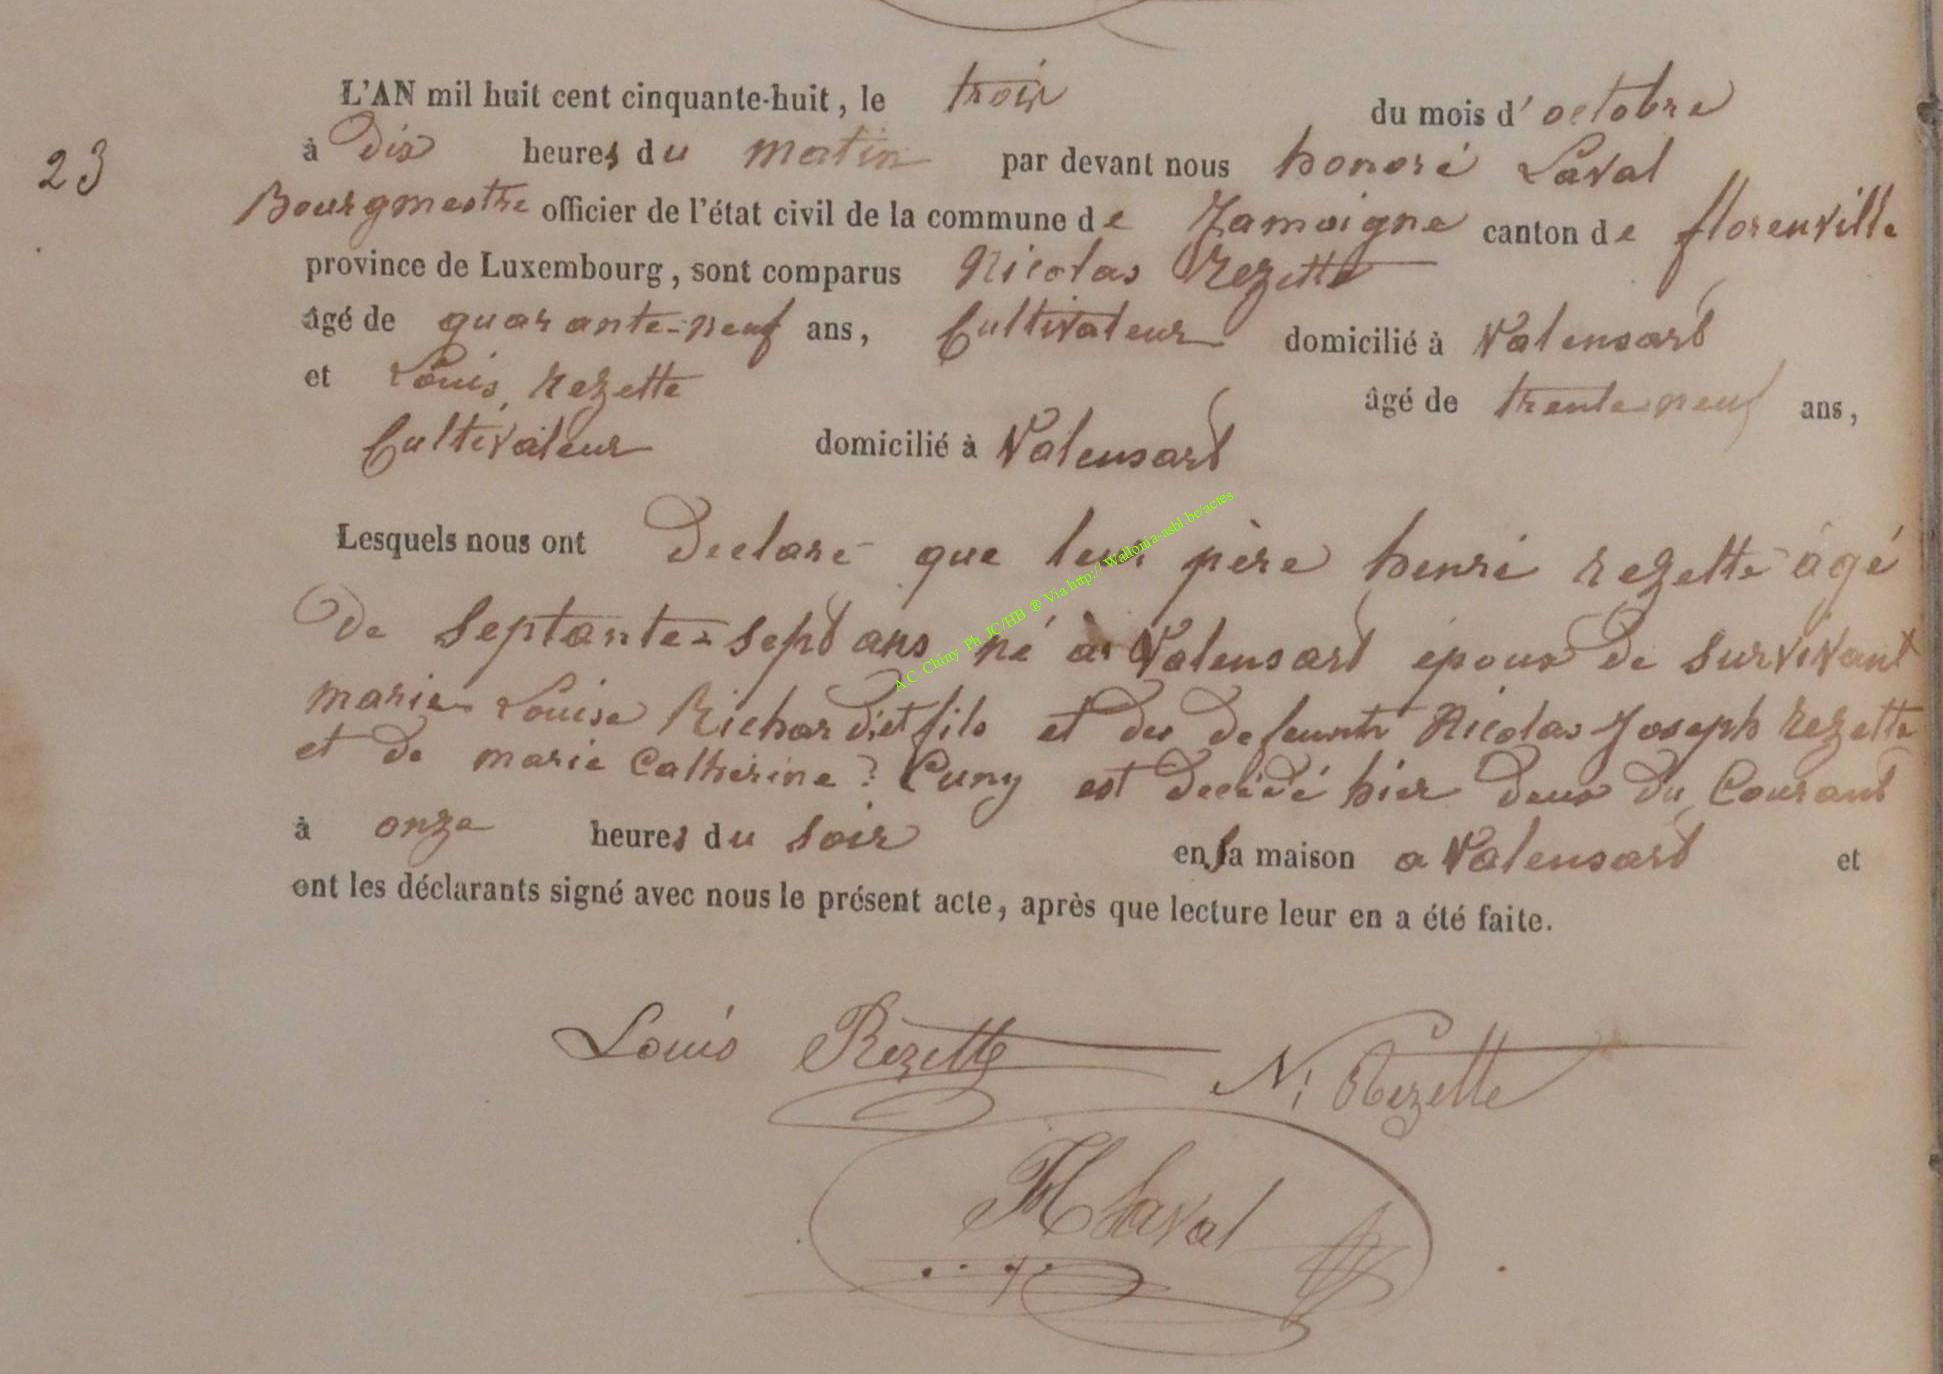 L'AN mil huit cent cinquante-huit, le trois du mois d'octobre
23
à Dix heures du matin par devant nous honoré Laval
Bourgmestre officier de l'état civil de la commune de Jamoigne canton de florenville
province de Luxembourg, sont comparus Nicolas Rezette
âgé de quarante-neuf ans, Cultivateur domicilié à Valensart
et Louis, Rezette âgé de trente-neuf ans,
Cultivateur domicilié à Valensart
Lesquels nous ont Declaré que leur père henri rezette âgé
De septante-sept ans né à Valensart époux de survivant
marie Louise Richardet fils et des defeunts Nicolas Joseph rezette
et de marie Catherine ? Cuny est decédé hier deux du Courant
à onze heures du soir en sa maison a Valensart et
ont les déclarants signé avec nous le présent acte, après que lecture leur en a été faite.
Louis Rezette N: Rezette
H Laval
A.C. Chiny Ph. JC/HB ® Via http://Wallonia-asbl.be/actes